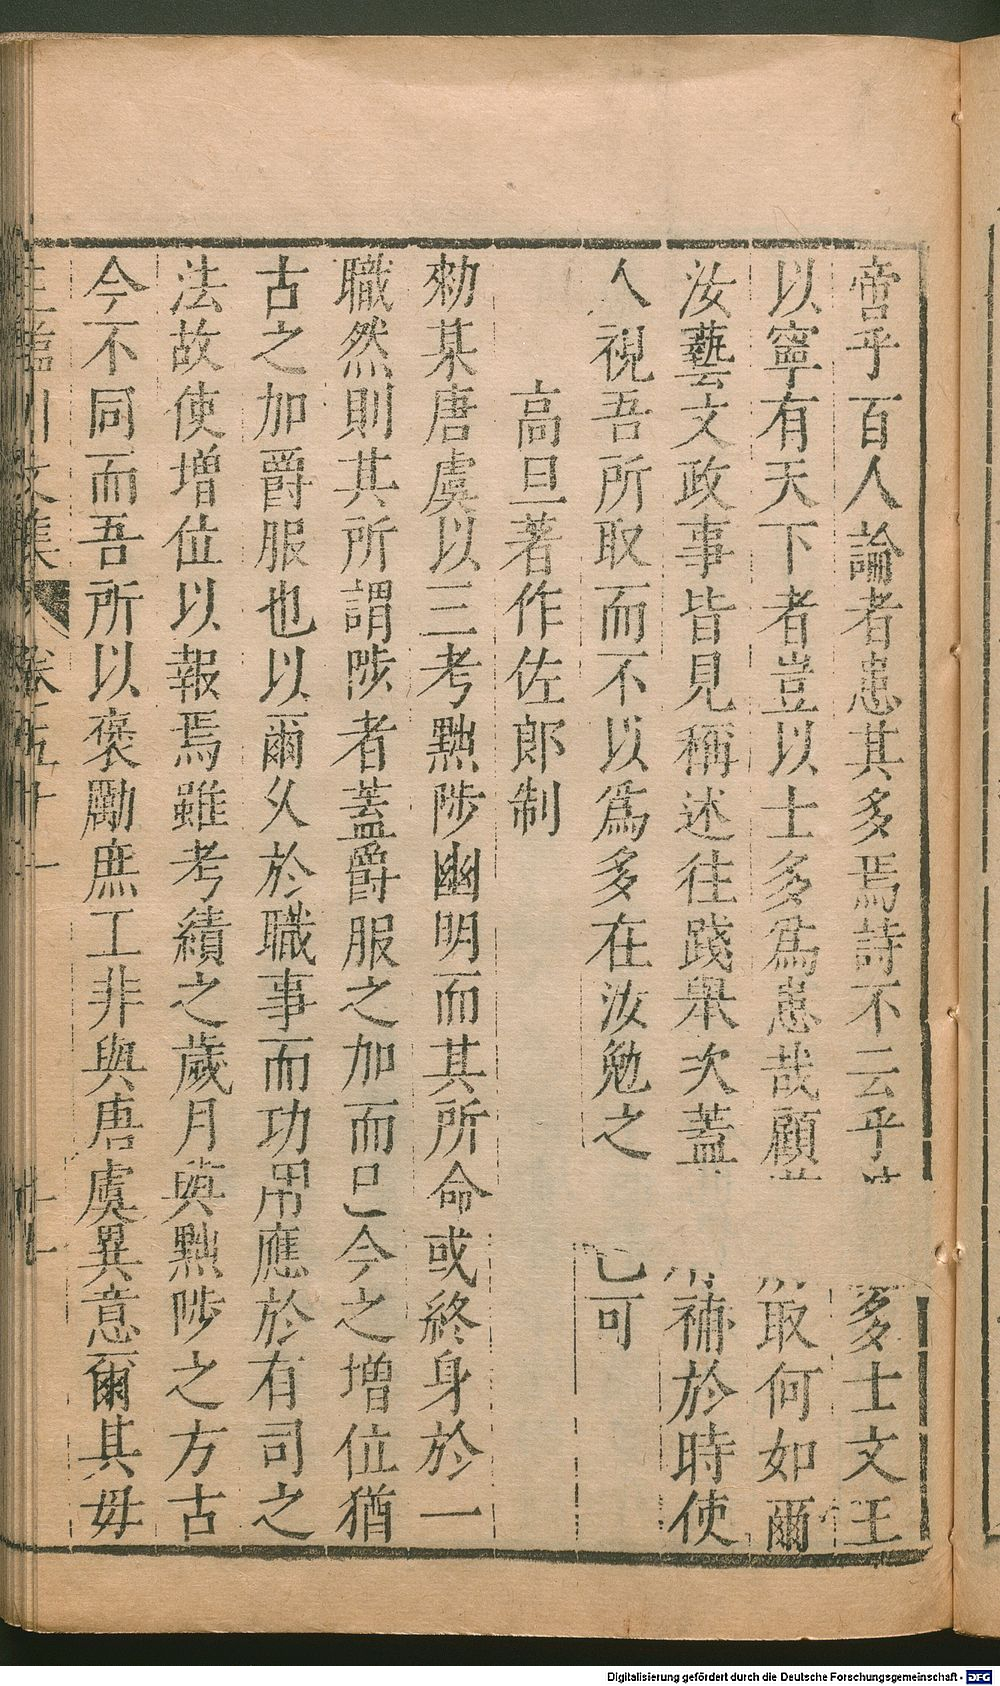 啻乎百人論者患其多焉詩不云乎多士文王
以寧有天下者豈以士多爲患哉顧取何如爾
汝藝文政事皆見稱述往踐舉次蓋補於時使
人視吾所取而不以爲多在汝勉之可
高旦著作佐郎制
勑某唐虞以三考黜陟幽明而其所命或終身於一
職然則其所謂陟者蓋爵服之加而已今之增位猶
古之加爵服也以爾久於職事而功用應於有司之
法故使增位以報焉雖考績之歲月與黜陟之方古
今不同而吾所以褒勵庶工非與唐虞異意爾其毋
王臨川文集 卷五十一 十一
Digitalisierung gefördert durch die Deutsche Forschungsgemeinschaft - DFG